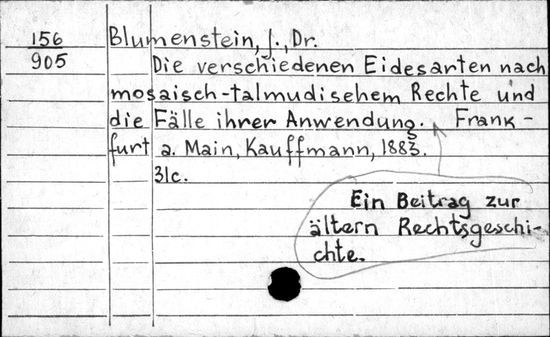 156
905
Blumenstein, J., Dr.
Die verschiedenen Eidesarten nach
mosaisch-talmudisehem Rechte und
die Fälle ihrer Anwendung. Frank-
furt a. Main, Kauffmann, 1883.
31c.
Ein Beitrag zur
ältern Rechtsgeschi-
chte.